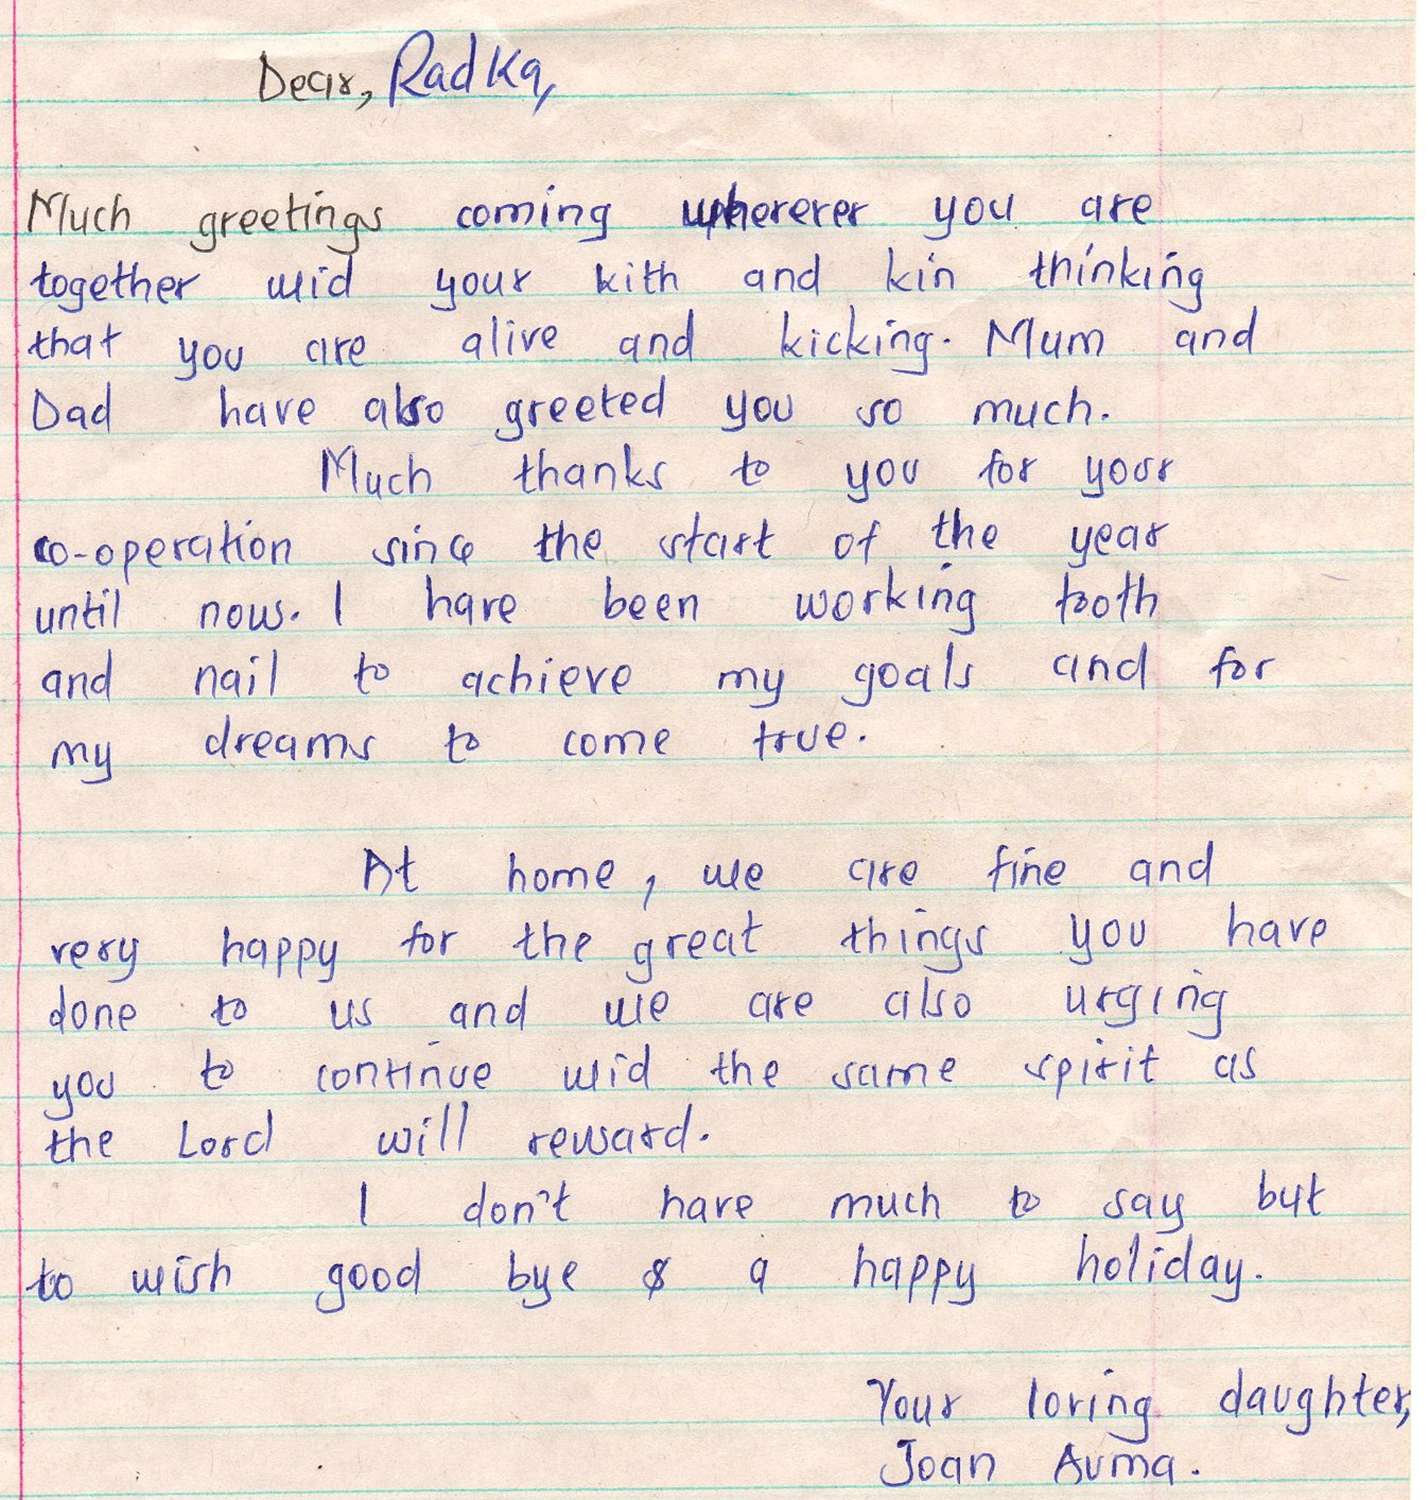 Dear, Radka,
Much greetings coming wherever you are
together wid your kith and kin thinking
that you are alive and kicking. Mum and
Dad have also greeted you so much.
Much thanks to you for your
co-operation since the start of the year
until now. I have been working tooth
and nail to achieve my goals and for
my dreams to come true.
At home, we are fine and
very happy for the great things you have
done to us and we are also urging
you to continue wid the same spirit as
the Lord will reward.
I don't have much to say but
to wish good bye & a happy holiday.
Your loving daughter,
Joan Auma.